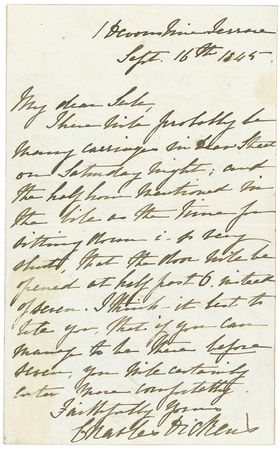 1 Devonshire Terrace
Sept. 16th 1845.
My dear
There will probably be
many carriages in Dean Street
on Saturday night; and
the half hour mentioned in
the bill as the time for
sitting down is so very
short, that the door will be
opened at half past 6, instead
of seven. I think it best to
tell you, that if you can
manage to be there before
seven, you will certainly
enter more comfortably.
Faithfully Yours
Charles Dickens